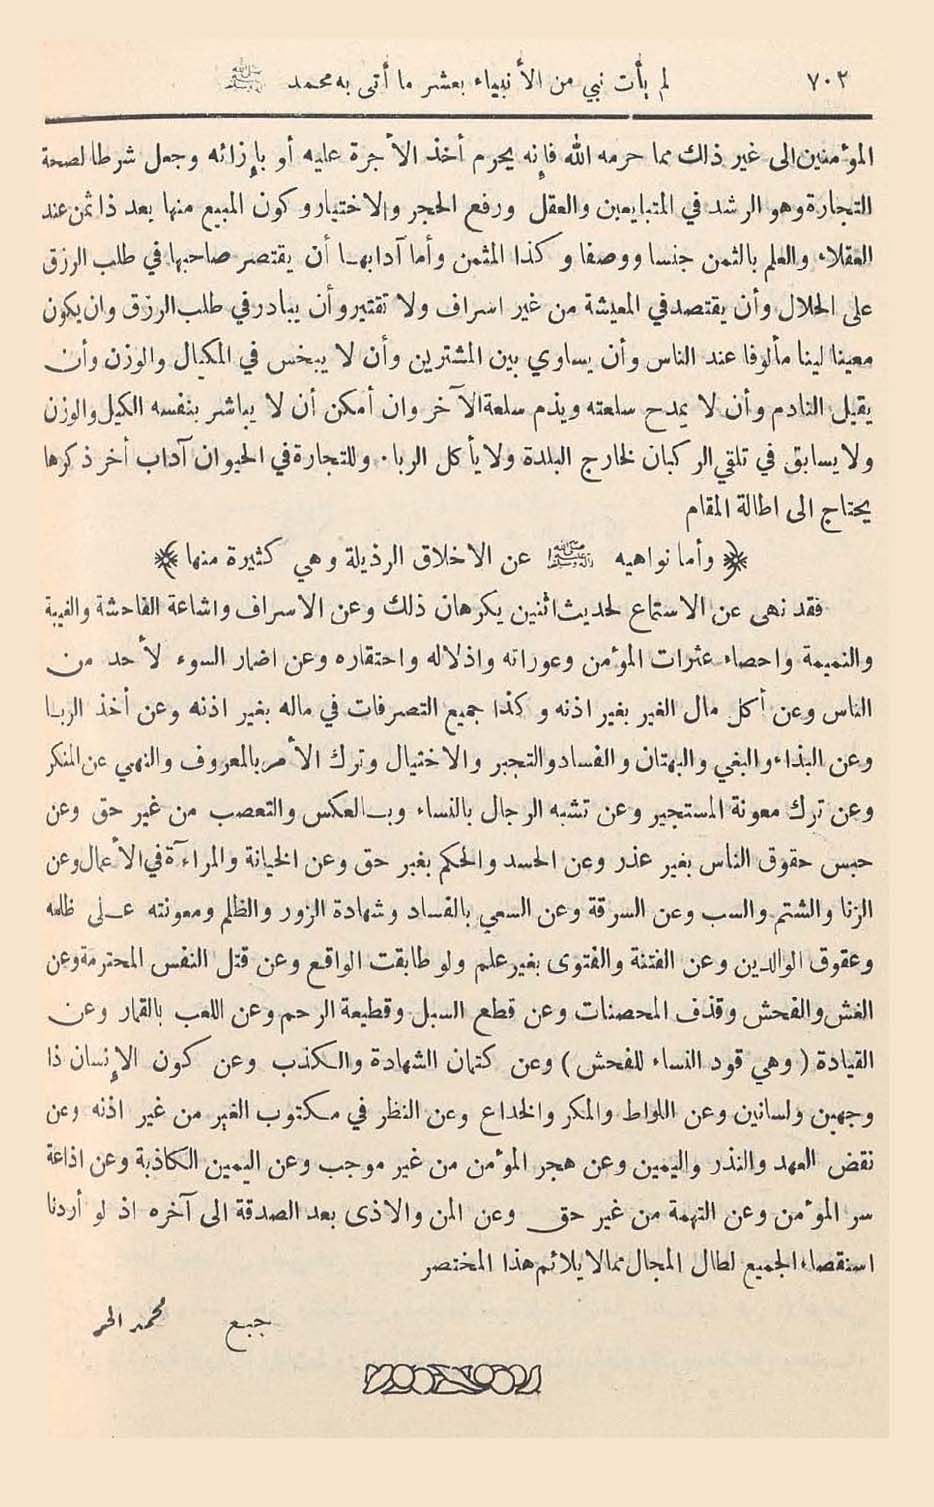 ٧٠٢ لم يأت نبي من الأنبياء بعشر ما أتى به محمد ﷺ
المؤمنين الى غير ذالك مما حرمه الله فإنه يحرم أخذ الأجرة عليه أو بإزائه وجعل شرطا لصحة
التجارة وهو الرشد في المتبايعين والعقل ورفع الحجر والاختيار و كون المبيع منها بعد ذا ثمن عند
العقلاء والعلم بالثمن جنسا ووصفا و كذا المثمن وأما آدابهـا أن يقتصر صاحبها في طلب الرزق
على الحلال وأن يقتصد في المعيشة من غير اسراف ولا تقتير وأن يبادر في طلب الرزق وان يكون
معينا لينا مألوفا عند الناس وأن يساوي بين المشترين وأن لا يبخس في المكيال والوزن وأن
يقيل النادم وأن لا يمدح سلعته ويذم سلعة الآخر وان أمكن أن لا يباشر بنفسه الكيل والوزن
ولا يسابق في تلقي الركبان لخارج البلدة ولا يأكل الربا ٠ وللتجارة في الحيوان آداب أخر ذكرها
يحتاج الى اطالة المقام
﴿ وأما نواهيه ﷺ عن الاخلاق الرذيلة وهي كثيرة منها ﴾
فقد نهى عن الاستماع لحديث اثنين يكرهان ذلك وعن الاسراف واشاعة الفاحشة والغيبة
والنميمة واحصاء عثرات المؤمن وعوراته واذلاله واحتقاره وعن اضمار السوء لأحد من
الناس وعن أكل مال الغير بغير اذنه و كذا جميع التصرفات في ماله بغير اذنه وعن أخذ الربـا
وعن البذاء والبغي والبهتان والفساد والتجبر والاختيال وترك الأمر بالمعروف والنهي عن المنكر
وعن ترك معونة المستجير وعن تشبه الرجال بالنساء وبـالعكس والتعصب من غير حق وعن
حبس حقوق الناس بغير عذر وعن الحسد والحكم بغير حق وعن الخيانة والمراءآة في الأعمال وعن
الزنا والشتم والسب وعن السرقة وعن السعي بالفساد وشهادة الزور والظلم ومعونته عـلى ظلمه
وعقوق الوالدين وعن الفتنة والفتوى بغير علم ولو طابقت الواقع وعن قتل النفس المحترمة وعن
الغش والفحش وقذف المحصنات وعن قطع السبل وقطيعة الرحم وعن اللعب بالقمار وعن
القيادة ( وهي قود النساء للفحش ) وعن كتمان الشهادة والكذب وعن كون الإنسان ذا
وجهين ولسانين وعن اللواط والمكر والخداع وعن النظر في مكتوب الغير من غير اذنه وعن
نقض العهد والنذر واليمين وعن هجر المؤمن من غير موجب وعن اليمين الكاذبة وعن اذاعة
سر المؤمن وعن التهمة من غير حق وعن المن والاذى بعد الصدقة الى آخره اذ لو أردنا
استقصاء الجميع لطال المجال مما لا يلائم هذا المختصر
جبع محمد الحر